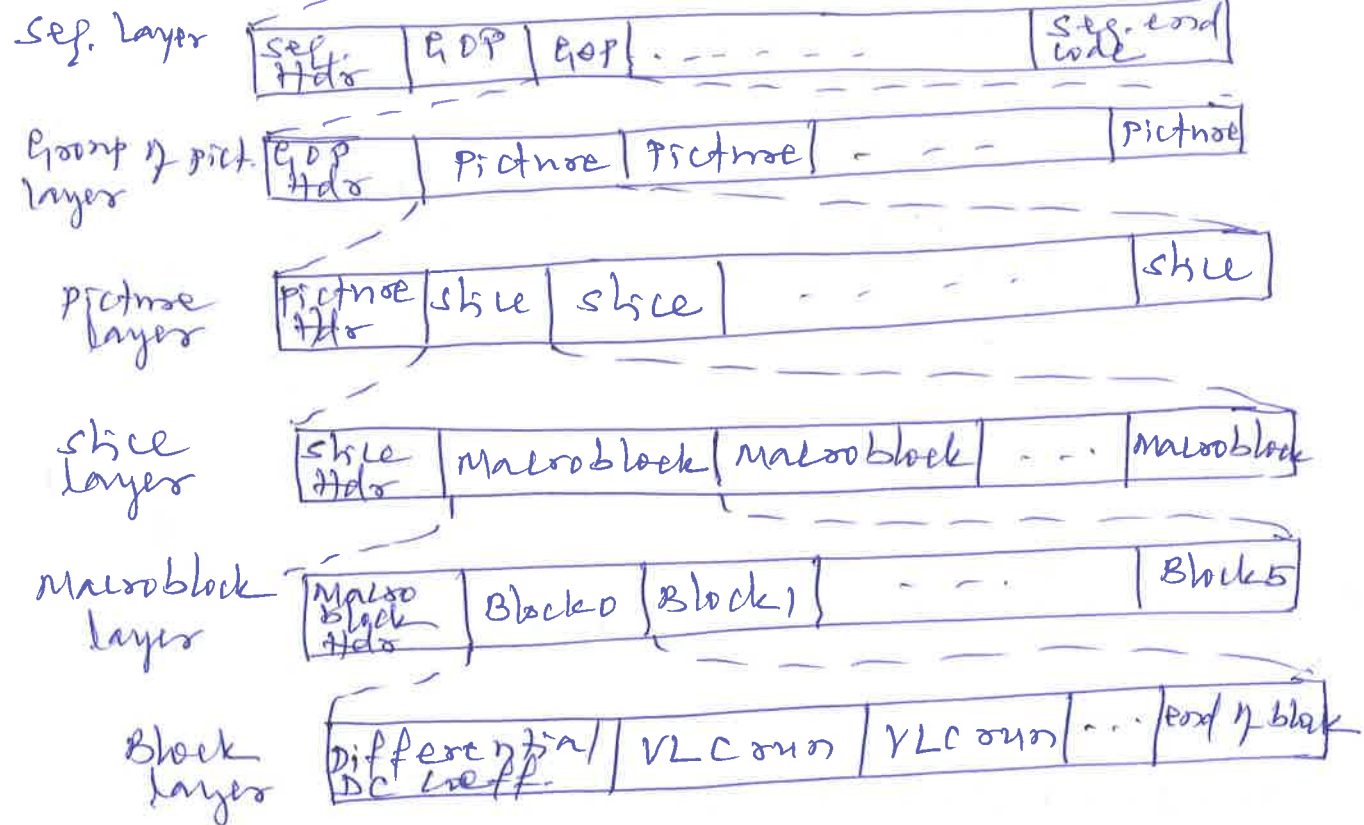 Seq. Layer
Seq. Hdr
GOP
GOP
. - - - - -
Seq. end code
Group of pict. layer
GOP Hdr
Picture
Picture
. - - -
Picture
Picture layer
Picture Hdr
Slice
Slice
- - - .
Slice
Slice layer
Slice Hdr
Macroblock
Macroblock
. - - .
Macroblock
Macroblock layer
Macro block Hdr
Block0
Block1
- - .
Block5
Block layer
Differential DC Coeff.
VLC run
VLC run
...
end of block